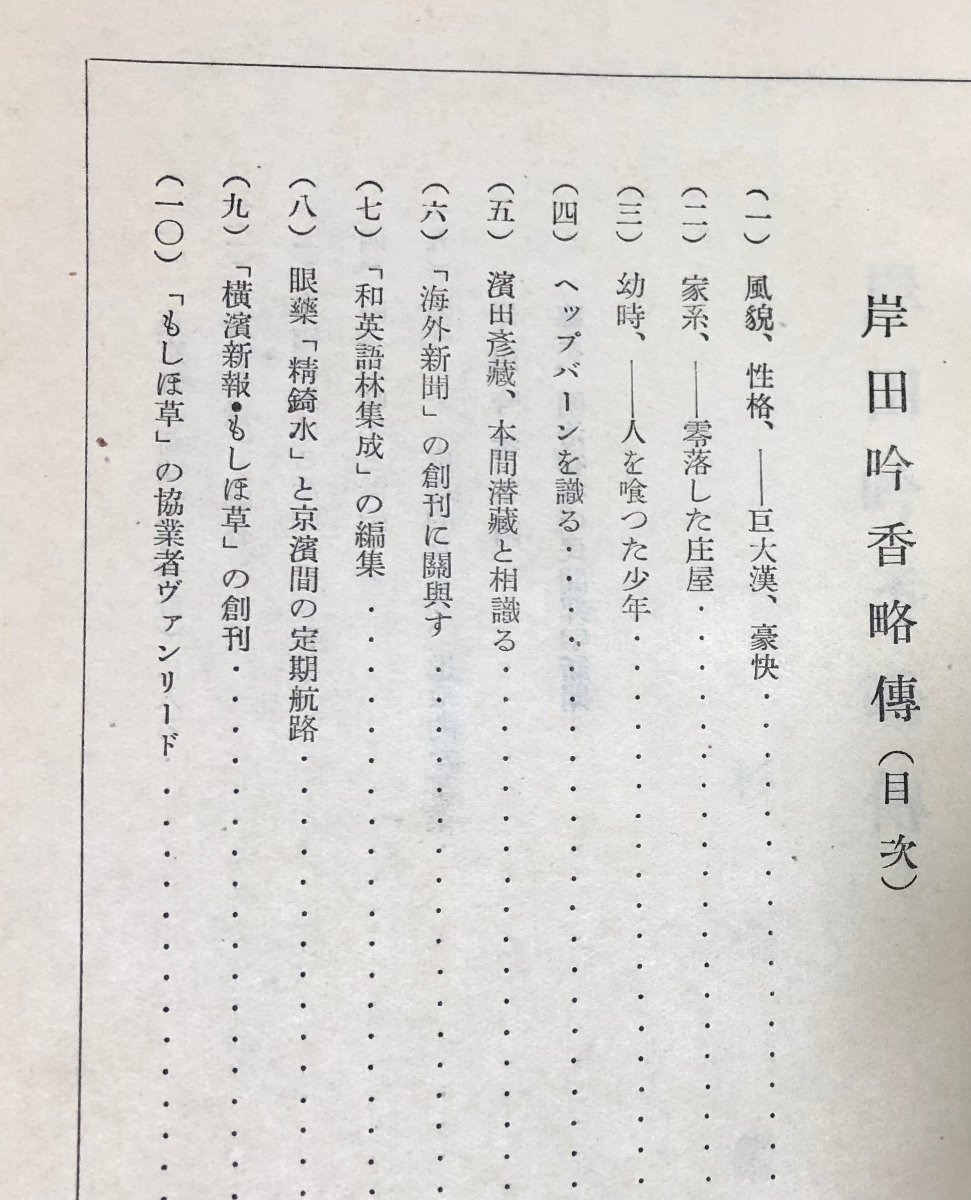 岸田吟香略傳(目次)
(一) 風貌、性格、――巨大漢、豪快・・・・・・・・・・・・・・・・・
(二) 家系、――零落した庄屋・・・・・・・・・・・・・・・・・・・・
(三) 幼時、――人を喰つた少年・・・・・・・・・・・・・・・・・・・
(四) ヘップバーンを識る・・・・・・・・・・・・・・・・・・・・・・
(五) 濱田彥藏、本間潜藏と相識る・・・・・・・・・・・・・・・・・・
(六) 「海外新聞」の創刊に關與す・・・・・・・・・・・・・・・・・・
(七) 「和英語林集成」の編集・・・・・・・・・・・・・・・・・・・・
(八) 眼藥「精錡水」と京濱間の定期航路・・・・・・・・・・・・・・・
(九) 「橫濱新報●もしほ草」の創刊・・・・・・・・・・・・・・・・・・
(一〇) 「もしほ草」の協業者ヴァンリード・・・・・・・・・・・・・・・